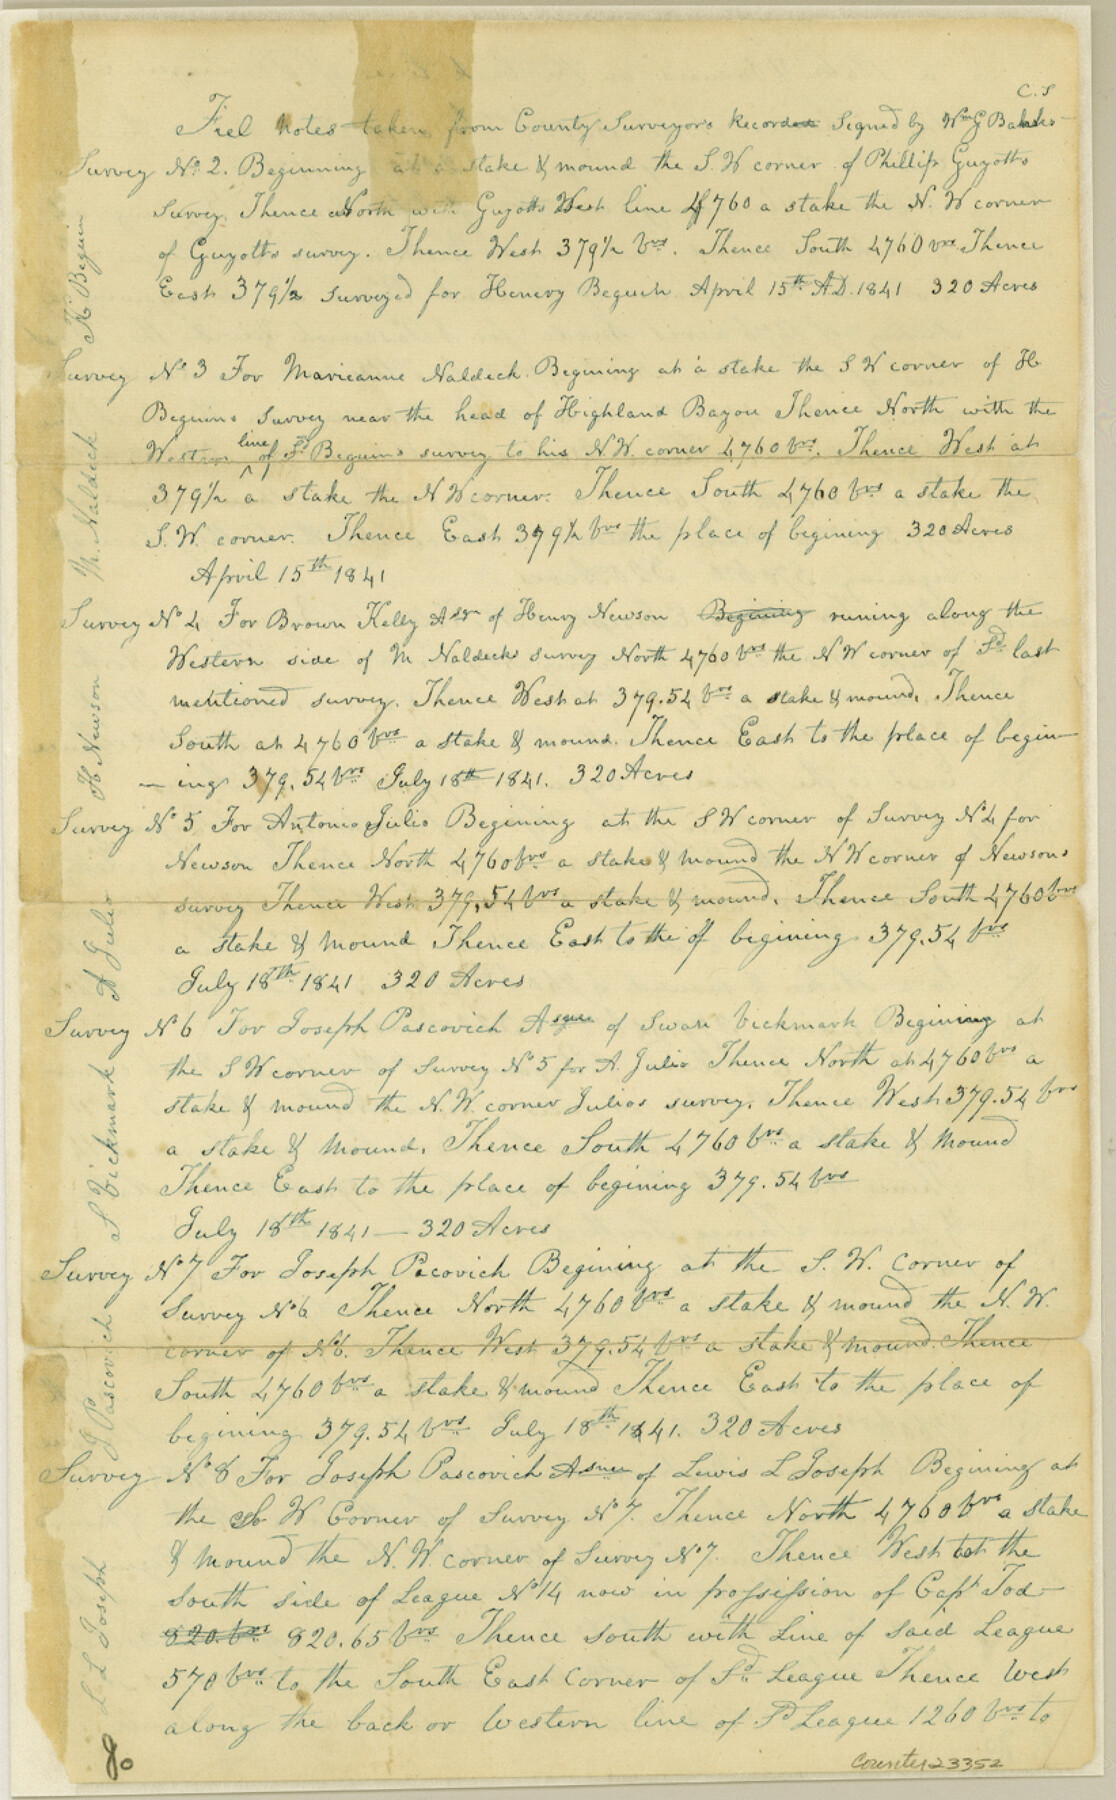 C.S
Fiel notes taken from County Surveyors Records Signed by Wm G Banks
Survey No 2. Beginning at a stake & mound the S. W corner of Phillip Guyotts
survey. Thence North with Guyotts West line 4760 a stake the N. W corner
of Guyotts survey. Thence West 379 1/2 vrs. Thence South 4760 vrs Thence
East 379 1/2 surveyed for Henery Beguin April 15th A.D. 1841 320 Acres
H. Beguin
Survey No 3 For Marieanne Naldeck. Begining at a stake the S W corner of H
Beguins Survey near the head of Highland Bayou Thence North with the
Western line of Sd Beguins survey to his N. W. corner 4760 vrs. Thence West at
379 1/2 a stake the N W corner. Thence South 4760 vrs a stake the
S. W. corner. Thence East 379 1/2 vrs the place of begining 320 Acres
April 15th 1841
M. Naldeck
Survey No 4 For Brown Kelly Asn of Henry Newson Begining runing along the
Western side of M Naldecks survey North 4760 vrs the N W corner of Sd last
mentioned survey. Thence West at 379.54 vrs a stake & mound. Thence
South at 4760 vrs a stake & mound. Thence East to the place of begin–
– ing 379.54 vrs July 18th 1841. 320 Acres
H Newson
Survey No 5 For Antonio Julio Begining at the S W corner of Survey No 4 for
Newson Thence North 4760 vrs a stake & mound the N W corner of Newsons
survey Thence West 379.54 vrs a stake & mound. Thence South 4760 vrs
a stake & mound Thence East to the of begining 379.54 vrs
July 18th 1841 320 Acres
A Julio
Survey No 6 For Joseph Pascovich Asgnee of Swan Vickmark Begining at
the S W corner of Survey No 5 for A. Julio Thence North at 4760 vrs a
stake & mound the N. W. corner Julios survey. Thence West 379.54 vrs
a stake & mound. Thence South 4760 vrs a stake & mound
Thence East to the place of begining 379.54 vrs
July 18th 1841 — 320 Acres
S Vickmark
Survey No 7 For Joseph Pacovich Begining at the S. W. Corner of
Survey No 6 Thence North 4760 vrs a stake & mound the N. W.
corner of No 6. Thence West 379.54 vrs a stake & mound. Thence
South 4760 vrs a stake & mound Thence East to the place of
begining 379.54 vrs July 18th 1841. 320 Acres
J Pascovich
Survey No 8 For Joseph Pascovich Asnee of Lewis L Joseph Begining at
the So W Corner of Survey No 7. Thence North 4760 vrs a stake
& mound the N. W. corner of Survey No 7. Thence West at the
south side of League No 14 now in possission of Capt Tod
820 vrs 820.65 vrs Thence south with Line of said League
570 vrs to the South East Corner of Sd League Thence West
along the back or Western line of Sd League 1260 vrs to
L L Joseph
80
counter 23352